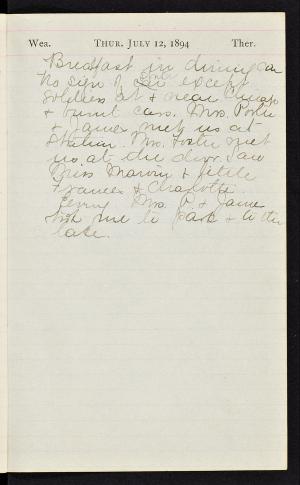 Wea. THUR. JULY 12, 1894 Ther.
Breakfast in dining car
No sign of except
soldiers at & near Chicago
& burnt cars. Mrs. Porter
& James met us at
Station. Mrs. Foster met
us at the door. Saw
Miss Marvin & little
Frances & Charlotte
Mrs. P. & James
took me to park & to the
lake.